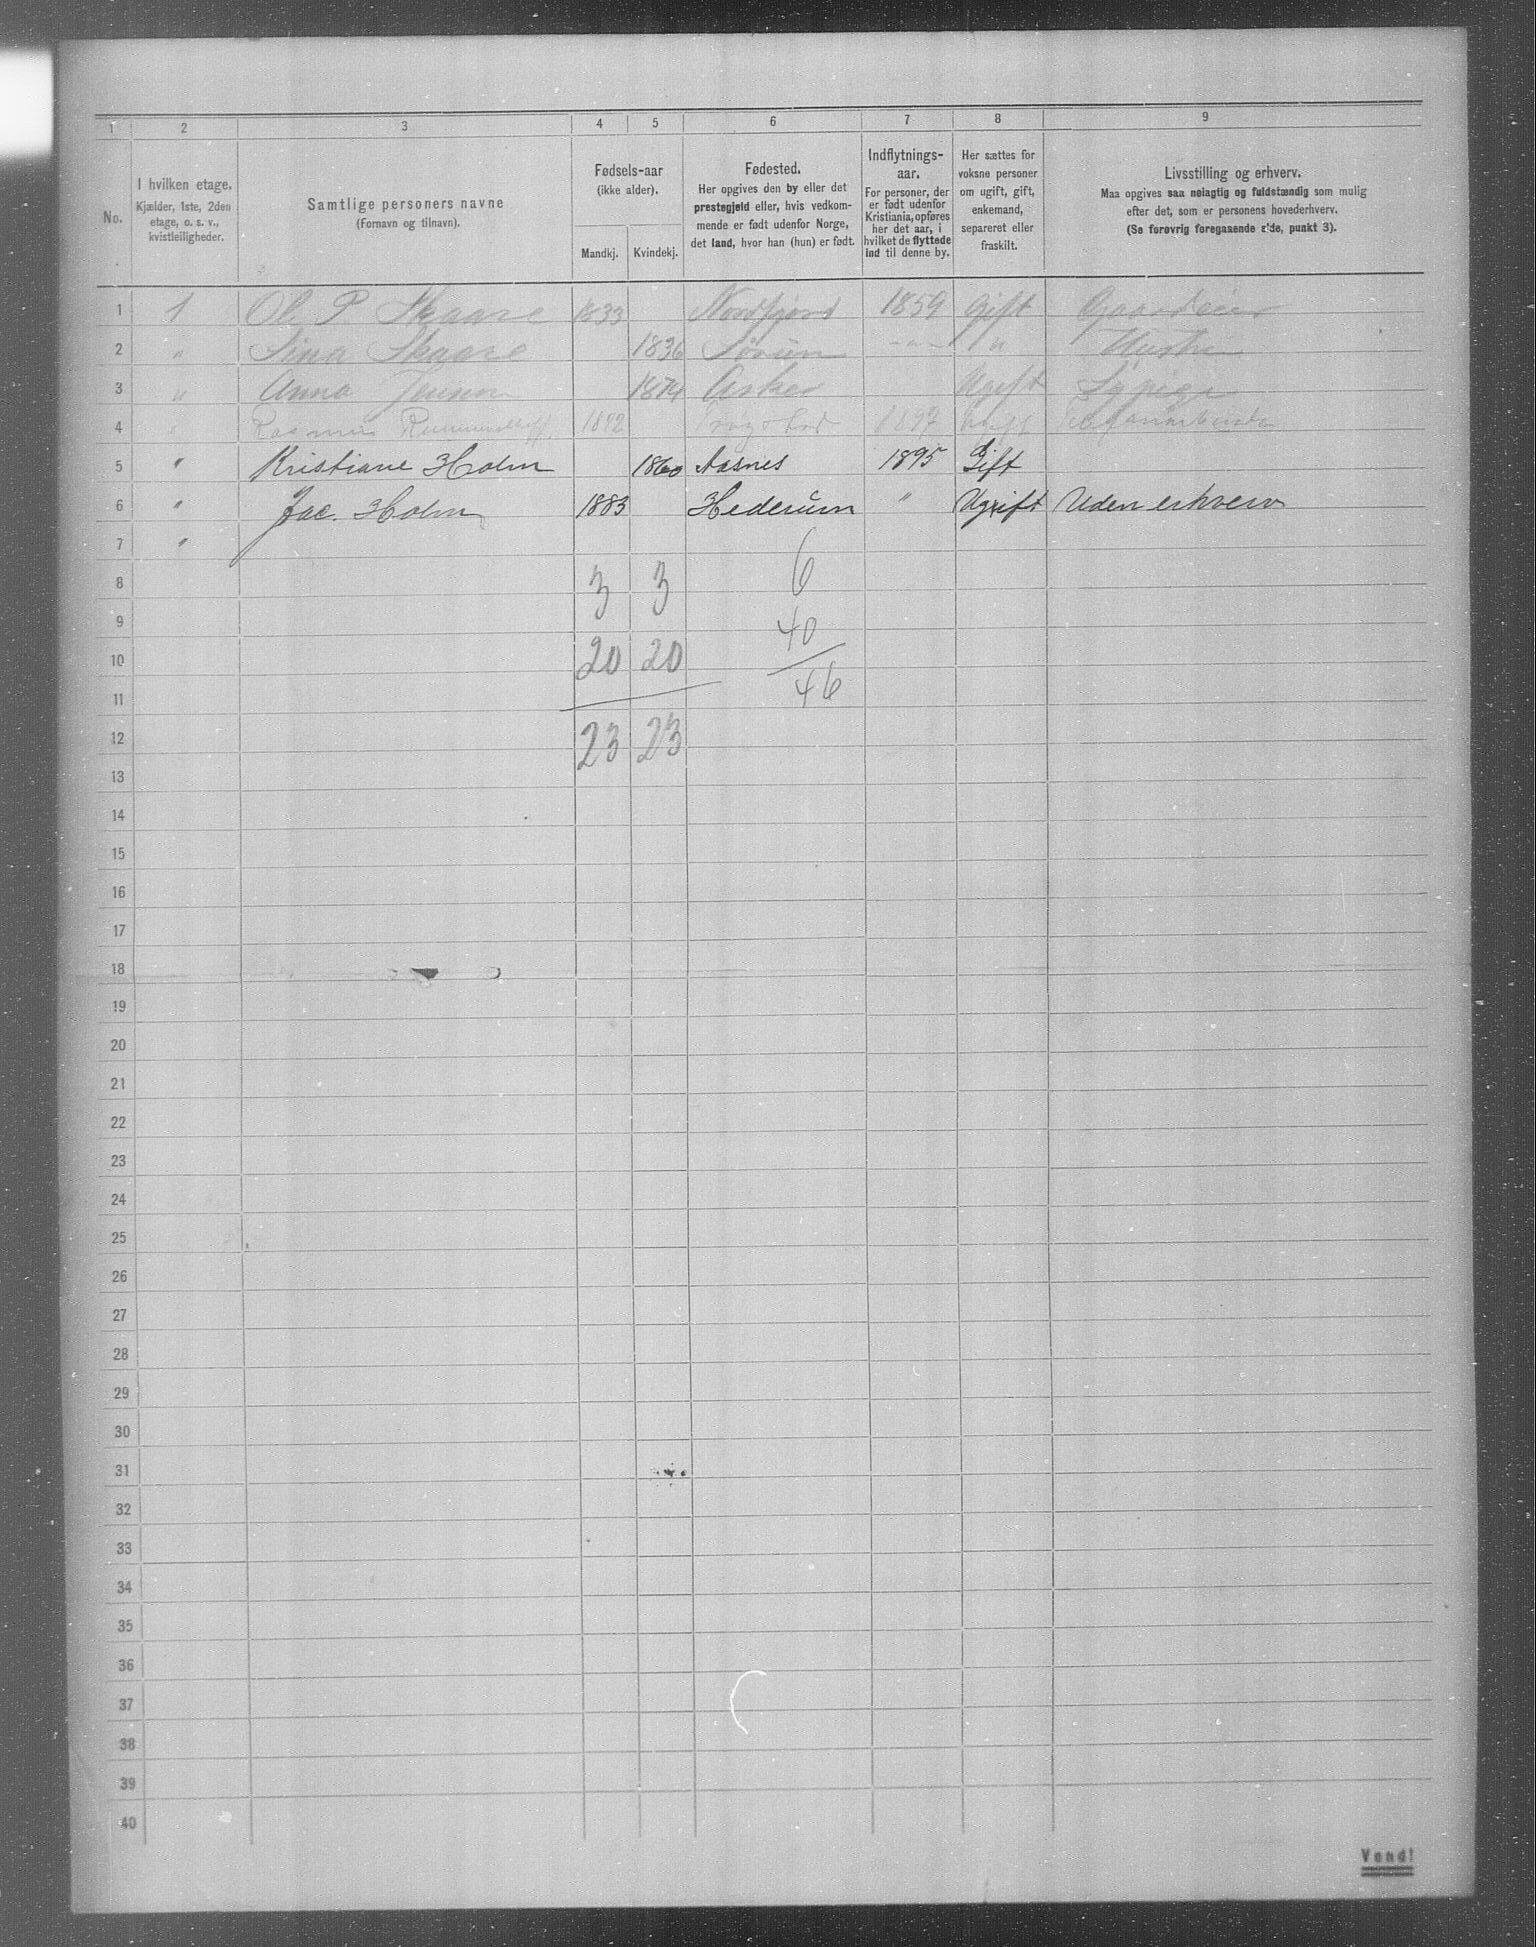 1 2 3 4 5 6 7 8 9
No.
I hvilken etage.
Kjælder, 1ste, 2den
etage, o. s. v.,
kvistleiligheder.
Samtlige personers navne
(Fornavn og tilnavn).
Fødsels-aar
(ikke alder).
Mandkj. Kvindekj.
Fødested.
Her opgives den by eller det
prestegjeld eller, hvis vedkom-
mende er født udenfor Norge,
det land, hvor han (hun) er født.
Indflytnings-
aar.
For personer, der
er født udenfor
Kristiania, opføres
her det aar, i
hvilket de flyttede
ind til denne by.
Her sættes for
voksne personer
om ugift, gift,
enkemand,
separeret eller
fraskilt.
Livsstilling og erhverv.
Maa opgives saa nøiagtig og fuldstændig som mulig
efter det, som er personens hovederhverv.
(Se forøvrig foregaaende side, punkt 3).
1 1 Ol. P Skaare 1833 Nordfjord 1859 Gift Gaardeier
2 " Lina Skaare 1836 Sørum -"- " Hustru
3 " Anna Jensen 1874 Asker Ugift Sypige
4 " Rasmus 1892 Trøgstad 1897 Ugift
5 " Kristiane Holm 1860 Aasnes 1895 Gift
6 " Jac. Holm 1883 Hederum " Ugift Uden erhverv
7 "
8 3 3 6
9 40
10 20 20
11 46
12 23 23
13
14
15
16
17
18
19
20
21
22
23
24
25
26
27
28
29
30
31
32
33
34
35
36
37
38
39
40
Vend!